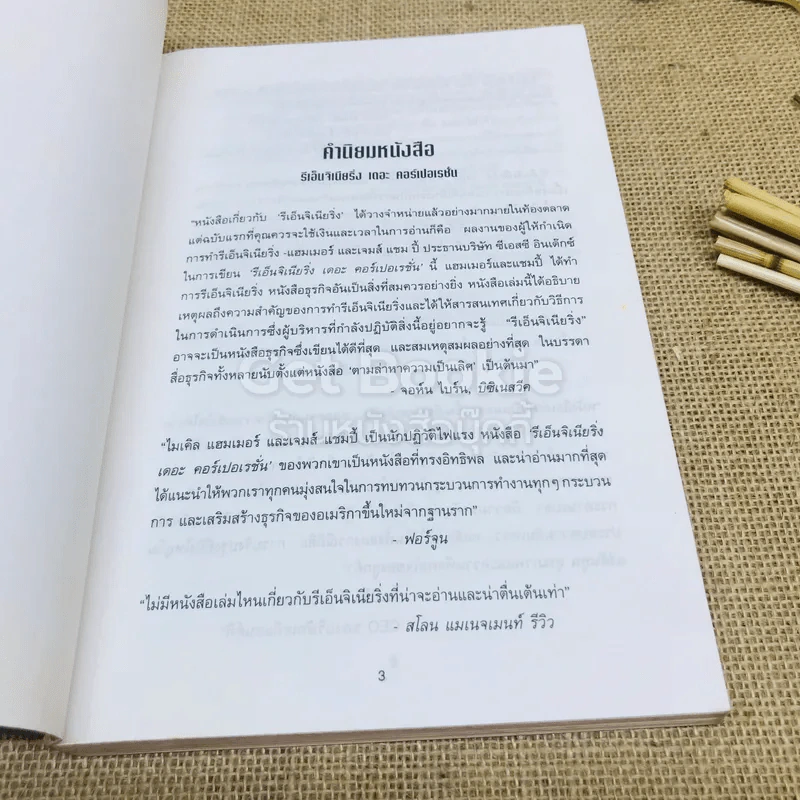 คำนิยมหนังสือ
รีเอ็นจิเนียริ่ง เดอะ คอร์เปอเรชั่น
"หนังสือเกี่ยวกับ 'รีเอ็นจิเนียริ่ง' ได้วางจำหน่ายแล้วอย่างมากมายในท้องตลาด
แต่ฉบับแรกที่คุณควรจะใช้เงินและเวลาในการอ่านก็คือ ผลงานของผู้ให้กำเนิด
การทำรีเอ็นจิเนียริ่ง -แฮมเมอร์ และเจมส์ แชม ปี้ ประธานบริษัท ซีเอสซี อินเด็กซ์
ในการเขียน 'รีเอ็นจิเนียริ่ง เดอะ คอร์เปอเรชั่น' นี้ แฮมเมอร์และแชมปี้ ได้ทำ
การรีเอ็นจิเนียริ่ง หนังสือธุรกิจอันเป็นสิ่งที่สมควรอย่างยิ่ง หนังสือเล่มนี้ได้อธิบาย
เหตุผลถึงความสำคัญของการทำรีเอ็นจิเนียริ่งและได้ให้สารสนเทศเกี่ยวกับวิธีการ
ในการดำเนินการซึ่งผู้บริหารที่กำลังปฏิบัติสิ่งนี้อยู่อยากจะรู้ "รีเอ็นจิเนียริ่ง"
อาจจะเป็นหนังสือธุรกิจซึ่งเขียนได้ดีที่สุด และสมเหตุสมผลอย่างที่สุด ในบรรดา
สื่อธุรกิจทั้งหลายนับตั้งแต่หนังสือ 'ตามล่าหาความเป็นเลิศ' เป็นต้นมา"
- จอห์น ไบร์น, บิซิเนสวีค
Get Bookie
ร้านหนังสือบุ๊คกี้
"ไมเคิล แฮมเมอร์ และเจมส์ แชมปี้ เป็นนักปฏิวัติไฟแรง หนังสือ 'รีเอ็นจิเนียริ่ง
เดอะ คอร์เปอเรชั่น' ของพวกเขาเป็นหนังสือที่ทรงอิทธิพล และน่าอ่านมากที่สุด
ได้แนะนำให้พวกเราทุกคนมุ่งสนใจในการทบทวนกระบวนการทำงานทุกๆ กระบวน
การ และเสริมสร้างธุรกิจของอเมริกาขึ้นใหม่จากฐานราก"
- ฟอร์จูน
"ไม่มีหนังสือเล่มไหนเกี่ยวกับรีเอ็นจิเนียริ่งที่น่าจะอ่านและน่าตื่นเต้นเท่า"
- สโลน แมเนจเมนท์ รีวิว
3